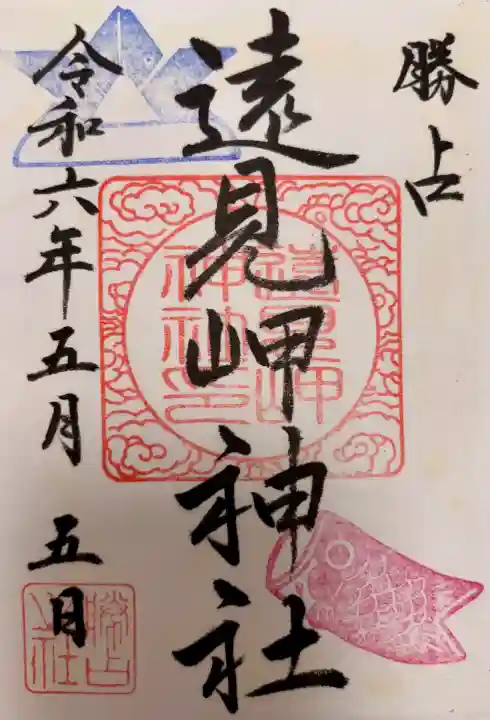 勝占
遠見岬神社
令和六年五月五日
遠見岬
神社印